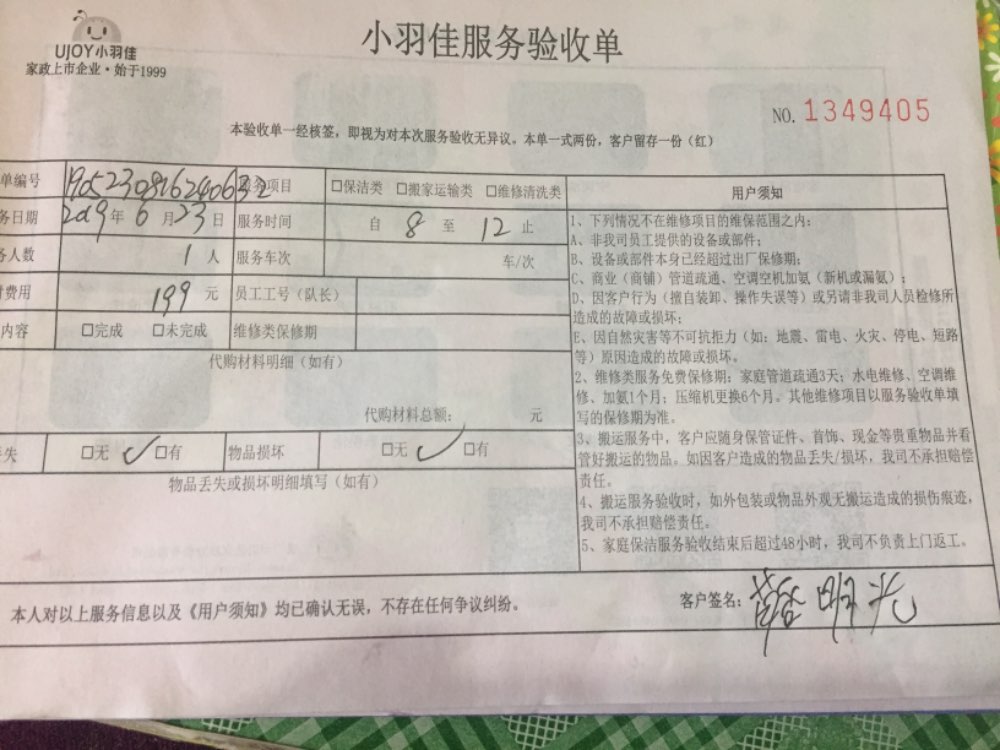 UJOY小羽佳
家政上市企业·始于1999
小羽佳服务验收单
NO. 1349405
本验收单一经核签，即视为对本次服务验收无异议。本单一式两份，客户留存一份（红）
单编号 服务项目 □保洁类 □搬家运输类 □维修清洗类
务日期 2019年6月23日 服务时间 自 8 至 12 止
务人数 1 人 服务车次 车/次
费用 199 元 员工工号（队长）
内容 □完成 □未完成 维修类保修期
代购材料明细（如有）
代购材料总额： 元
丢失 □无 ✓ □有 物品损坏 □无 ✓ □有
物品丢失或损坏明细填写（如有）
用户须知
1、下列情况不在维修项目的维保范围之内：
A、非我司员工提供的设备或部件；
B、设备或部件本身已经超过出厂保修期；
C、商业（商铺）管道疏通、空调空机加氨（新机或漏氨）；
D、因客户行为（擅自装卸、操作失误等）或另请非我司人员检修所
造成的故障或损坏；
E、因自然灾害等不可抗拒力（如：地震、雷电、火灾、停电、短路
等）原因造成的故障或损坏。
2、维修类服务免费保修期：家庭管道疏通3天；水电维修、空调维
修、加氨1个月；压缩机更换6个月。其他维修项目以服务验收单填
写的保修期为准。
3、搬运服务中，客户应随身保管证件、首饰、现金等贵重物品并看
管好搬运的物品。如因客户造成的物品丢失/损坏，我司不承担赔偿
责任。
4、搬运服务验收时，如外包装或物品外观无搬运造成的损伤痕迹，
我司不承担赔偿责任。
5、家庭保洁服务验收结束后超过48小时，我司不负责上门返工。
本人对以上服务信息以及《用户须知》均已确认无误，不存在任何争议纠纷。
客户签名：